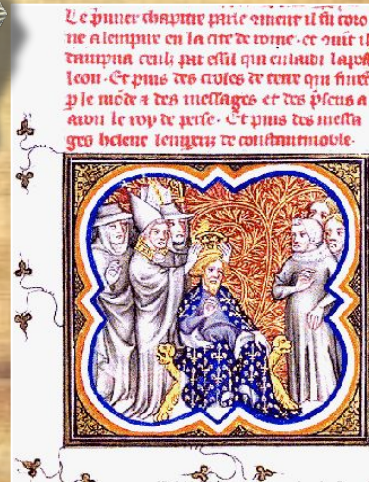 Le p̃mier chapitre parle ⁊ment il fu coro
ne a lempire en la cite de rome. et ⁊ment il
dampna ceulz par essil qui
leon. Et puis des croles de terre qui furẽt
p le mõde ⁊ des messages et des p̃sens a
aron le roy de perse. Et puis des messa
ges helene lempeis de constantinoble.